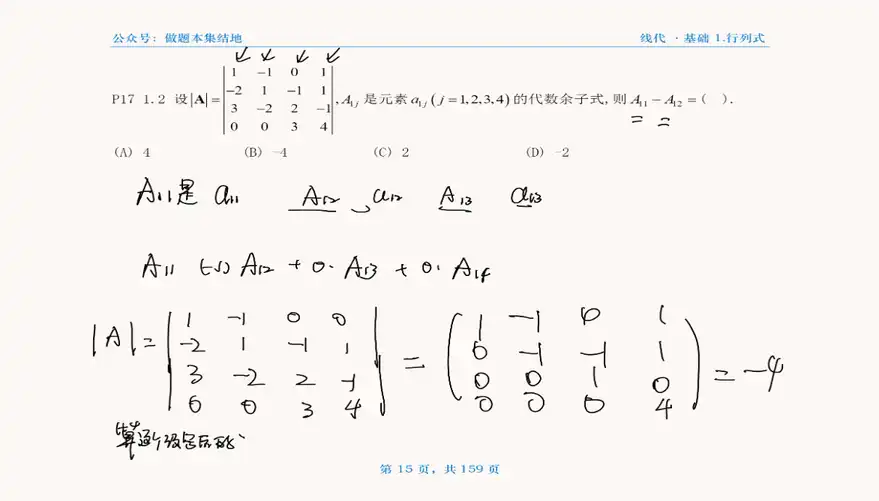 公众号: 做题本集结地 线代 · 基础 1.行列式
P17 1.2 设|A|=
| 1 -1 0 1 |
| -2 1 -1 1 |
| 3 -2 2 -1 |
| 0 0 3 4 |
, A₁ⱼ 是元素 a₁ⱼ ( j =1,2,3,4) 的代数余子式, 则 A₁₁ − A₁₂ = ( ).
(A) 4 (B) -4 (C) 2 (D) -2
A₁₁是 a₁₁ A₁₂ a₁₂ A₁₃ a₁₃
A₁₁ (-1) A₁₂ + 0· A₁₃ + 0· A₁₄
|A| =
| 1 -1 0 0 |
| -2 1 -1 1 |
| 3 -2 2 -1 |
| 0 0 3 4 |
=
( 1 -1 0 1 )
( 0 -1 -1 1 )
( 0 0 1 0 )
( 0 0 0 4 )
= -4
第 15 页, 共 159 页